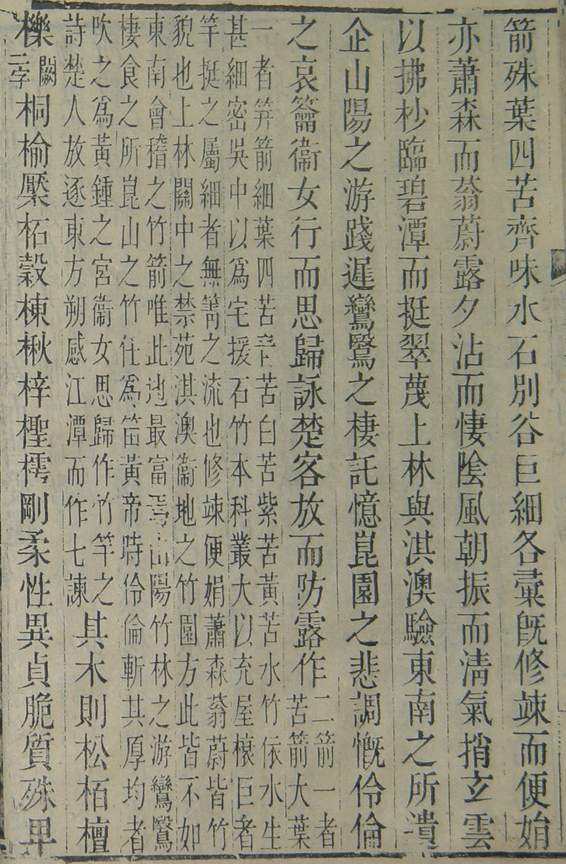 箭殊葉四苦齊味水石別谷巨細各彚既修竦而便娟
亦蕭森而蓊蔚露夕沾而悽陰風朝振而清氣捎玄雲
以拂杪臨碧潭而挺翠蔑上林與淇澳驗東南之所遺
企山陽之游踐遲鸞鷖之棲託憶崑園之悲調慨伶倫
之哀籥衞女行而思歸詠楚客放而防露作二箭一者
苦箭大葉
一者笄箭細葉四苦青苦白苦紫苦黃苦水竹依水生
甚細密吳中以爲宅援石竹本科叢大以充屋榱巨者
竿挺之屬細者無箐之流也修竦便娟蕭森蓊蔚皆竹
貌也上林關中之禁苑淇澳衞地之竹園方此皆不如
東南會稽之竹箭唯此地最富焉山陽竹林之游鸞鷖
棲食之所崑山之竹任爲笛黃帝時伶倫斬其厚均者
吹之爲黃鍾之宮衞女思歸作竹竿之
詩楚人放逐東方朔感江潭而作七諫
其木則松栢檀
櫟闕二字桐榆檿柘榖棟楸梓檉樗剛柔性異貞脆質殊卑